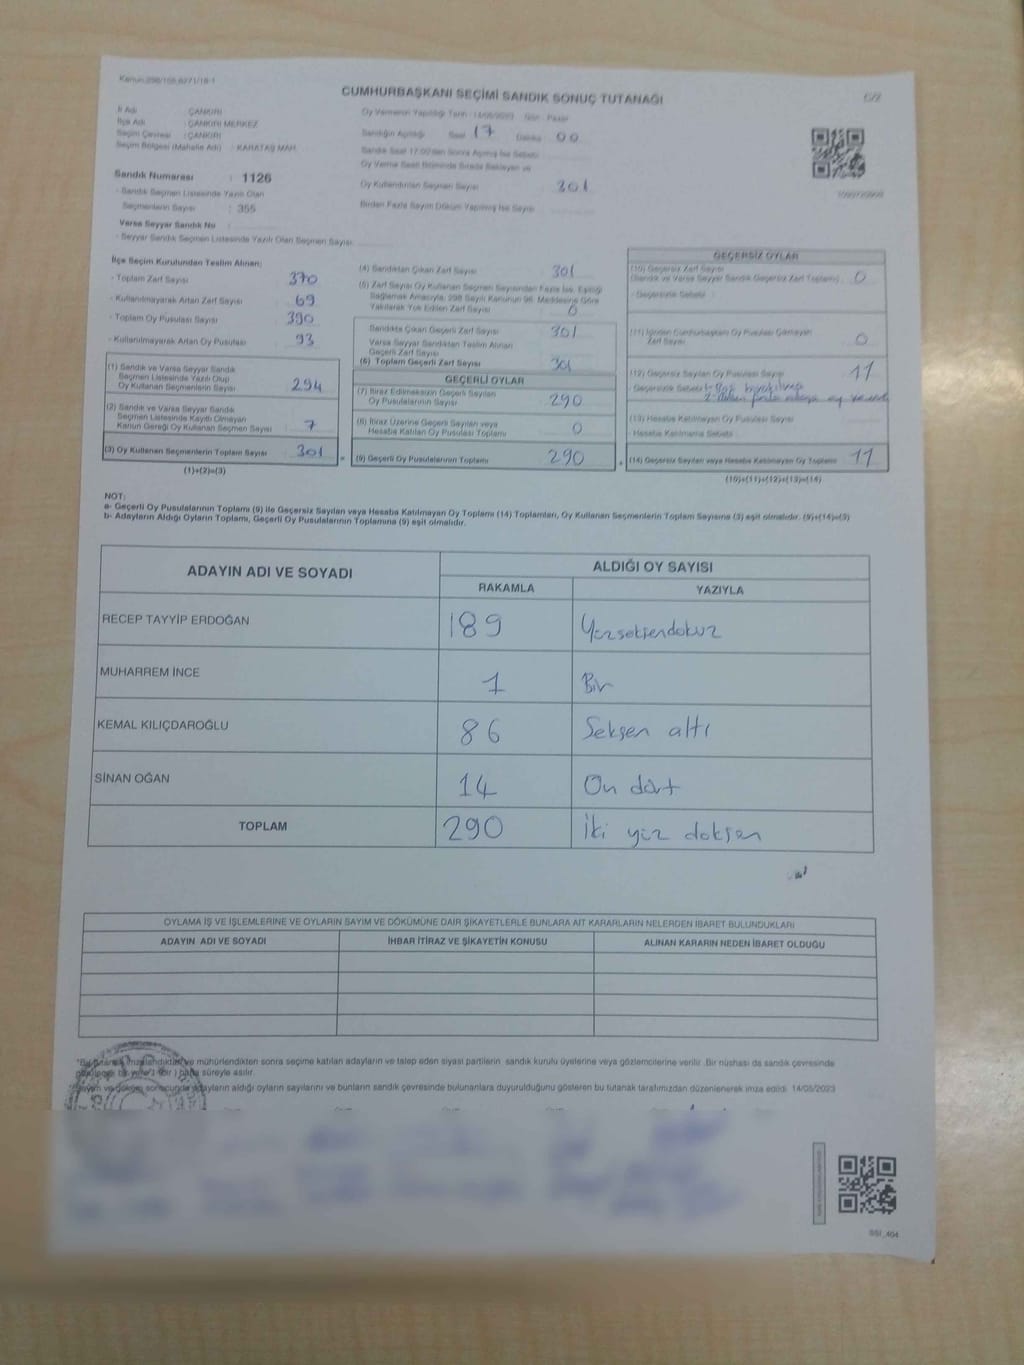 Kanun:298/105,6271/18-1
CUMHURBAŞKANI SEÇİMİ SANDIK SONUÇ TUTANAĞI
İl Adı : ÇANKIRI
İlçe Adı : ÇANKIRI MERKEZ
Seçim Çevresi : ÇANKIRI
Seçim Bölgesi (Mahalle Adı) : KARATAŞ MAH.
Sandık Numarası : 1126
- Sandık Seçmen Listesinde Yazılı Olan
Seçmenlerin Sayısı : 355
Varsa Seyyar Sandık No :
- Seyyar Sandık Seçmen Listesinde Yazılı Olan Seçmen Sayısı
Oy Vermenin Yapıldığı Tarih : 14/05/2023 Gün : Pazar
Sandığın Açıldığı Saat 17 Dakika 00
Sandık Saat 17:00'den Sonra Açılmış İse Sebebi
Oy Verme Saati Bitiminde Sırada Bekleyen ve
Oy Kullandırılan Seçmen Sayısı 301
Birden Fazla Sayım Döküm Yapılmış İse Sayısı
İlçe Seçim Kurulundan Teslim Alınan:
- Toplam Zarf Sayısı 370
- Kullanılmayarak Artan Zarf Sayısı 69
- Toplam Oy Pusulası Sayısı 390
- Kullanılmayarak Artan Oy Pusulası 93
(1) Sandık ve Varsa Seyyar Sandık
Seçmen Listesinde Yazılı Olup
Oy Kullanan Seçmenlerin Sayısı 294
(2) Sandık ve Varsa Seyyar Sandık
Seçmen Listesinde Kayıtlı Olmayan
Kanun Gereği Oy Kullanan Seçmen Sayısı 7
(3) Oy Kullanan Seçmenlerin Toplam Sayısı 301
(1)+(2)=(3)
(4) Sandıktan Çıkan Zarf Sayısı 301
(5) Zarf Sayısı Oy Kullanan Seçmen Sayısından Fazla İse, Eşitliği
Sağlamak Amacıyla, 298 Sayılı Kanunun 98. Maddesine Göre
Yakılarak Yok Edilen Zarf Sayısı 0
Sandıkta Çıkan Geçerli Zarf Sayısı 301
Varsa Seyyar Sandıktan Teslim Alınan
Geçerli Zarf Sayısı
(6) Toplam Geçerli Zarf Sayısı 301
GEÇERLİ OYLAR
(7) İtiraz Edilmeksizin Geçerli Sayılan
Oy Pusulalarının Sayısı 290
(8) İtiraz Üzerine Geçerli Sayılan veya
Hesaba Katılan Oy Pusulası Toplamı 0
= (9) Geçerli Oy Pusulalarının Toplamı 290
GEÇERSİZ OYLAR
(10) Geçersiz Zarf Sayısı
(Sandık ve Varsa Seyyar Sandık Geçersiz Zarf Toplamı) 0
- Geçersizlik Sebebi :
(11) İçinden Cumhurbaşkanı Oy Pusulası Çıkmayan
Zarf Sayısı 0
(12) Geçersiz Sayılan Oy Pusulası Sayısı 11
- Geçersizlik Sebebi
(13) Hesaba Katılmayan Oy Pusulası Sayısı
- Hesaba Katılmama Sebebi
+ (14) Geçersiz Sayılan veya Hesaba Katılmayan Oy Toplamı 11
(10)+(11)+(12)+(13)=(14)
NOT:
a- Geçerli Oy Pusulalarının Toplamı (9) ile Geçersiz Sayılan veya Hesaba Katılmayan Oy Toplamı (14) Toplamları, Oy Kullanan Seçmenlerin Toplam Sayısına (3) eşit olmalıdır. (9)+(14)=(3)
b- Adayların Aldığı Oyların Toplamı, Geçerli Oy Pusulalarının Toplamına (9) eşit olmalıdır.
ADAYIN ADI VE SOYADI
ALDIĞI OY SAYISI
RAKAMLA YAZIYLA
RECEP TAYYİP ERDOĞAN 189 Yüzseksendokuz
MUHARREM İNCE 1 Bir
KEMAL KILIÇDAROĞLU 86 Seksen altı
SİNAN OĞAN 14 On dört
TOPLAM 290 İki yüz doksan
OYLAMA İŞ VE İŞLEMLERİNE VE OYLARIN SAYIM VE DÖKÜMÜNE DAİR ŞİKAYETLERLE BUNLARA AİT KARARLARIN NELERDEN İBARET BULUNDUKLARI
ADAYIN ADI VE SOYADI İHBAR İTİRAZ VE ŞİKAYETİN KONUSU ALINAN KARARIN NEDEN İBARET OLDUĞU
mühürlendikten sonra seçime katılan adayların ve talep eden siyasi partilerin sandık kurulu üyelerine veya gözlemcilerine verilir. Bir nüshası da sandık çevresinde
hafta süreyle asılır.
adayların aldığı oyların sayılarını ve bunların sandık çevresinde bulunanlara duyurulduğunu gösteren bu tutanak tarafımızdan düzenlenerek imza edildi. 14/05/2023
SSI_404